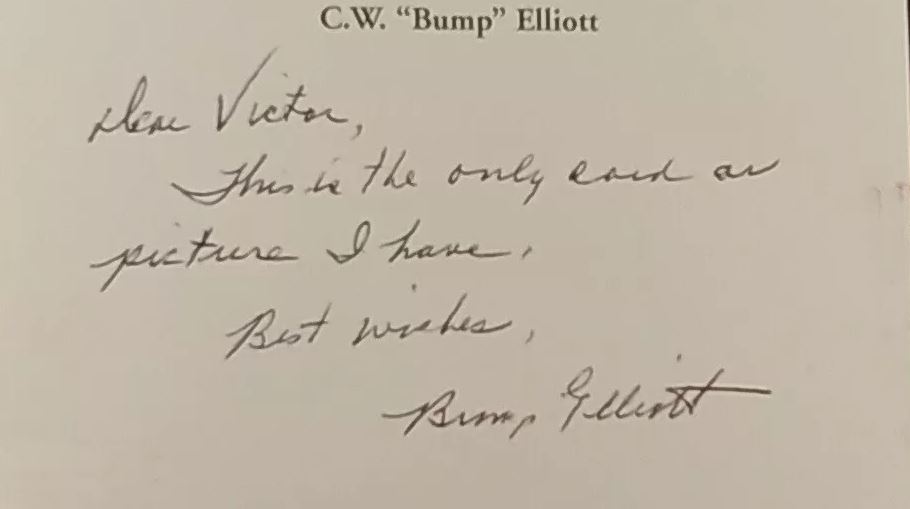 C.W. “Bump” Elliott
Dear Victor,
This is the only card or
picture I have.
Best wishes,
Bump Elliott